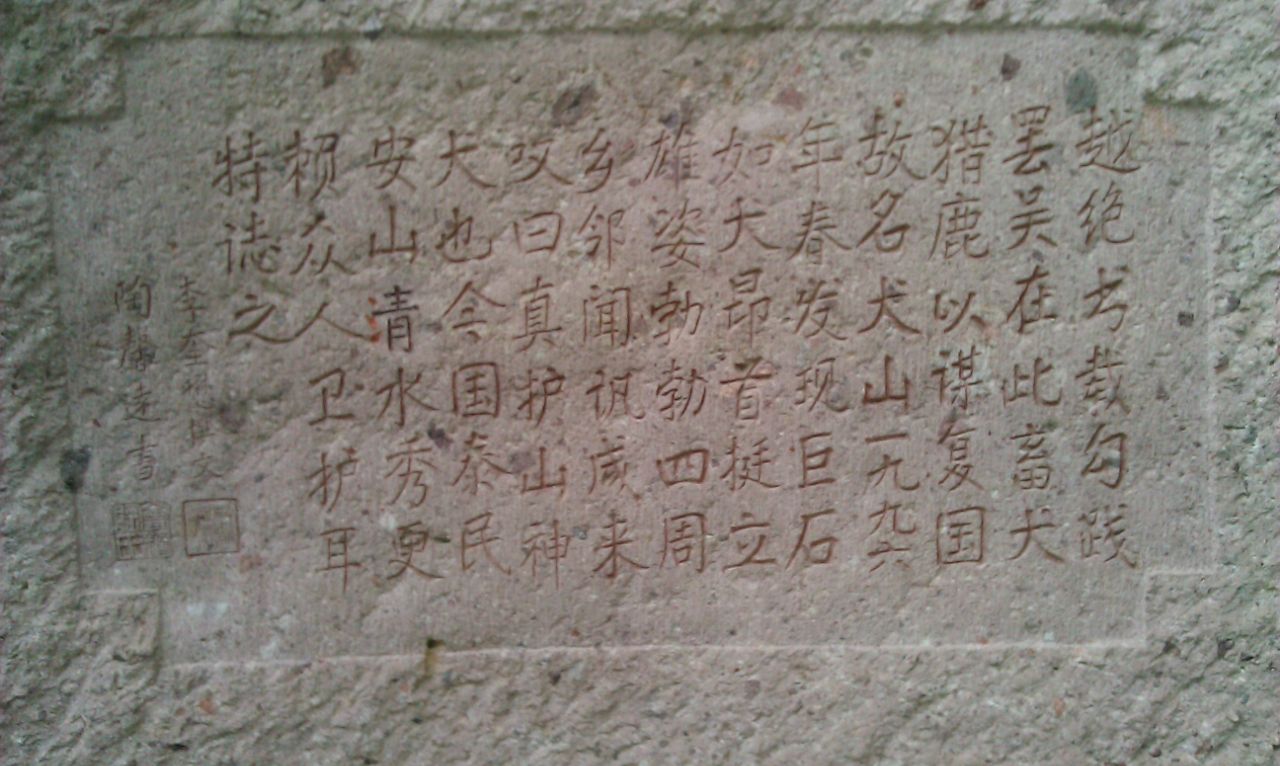 越绝书载勾践
罢吴在此畜犬
猎鹿以谋复国
故名犬山一九九六
年春发现巨石
如犬昂首挺立
雄姿勃勃四周
乡邻闻讯咸来
叹曰真护山神
犬也今国泰民
安山青水秀更
赖众人卫护耳
特誌之
李文
陶書